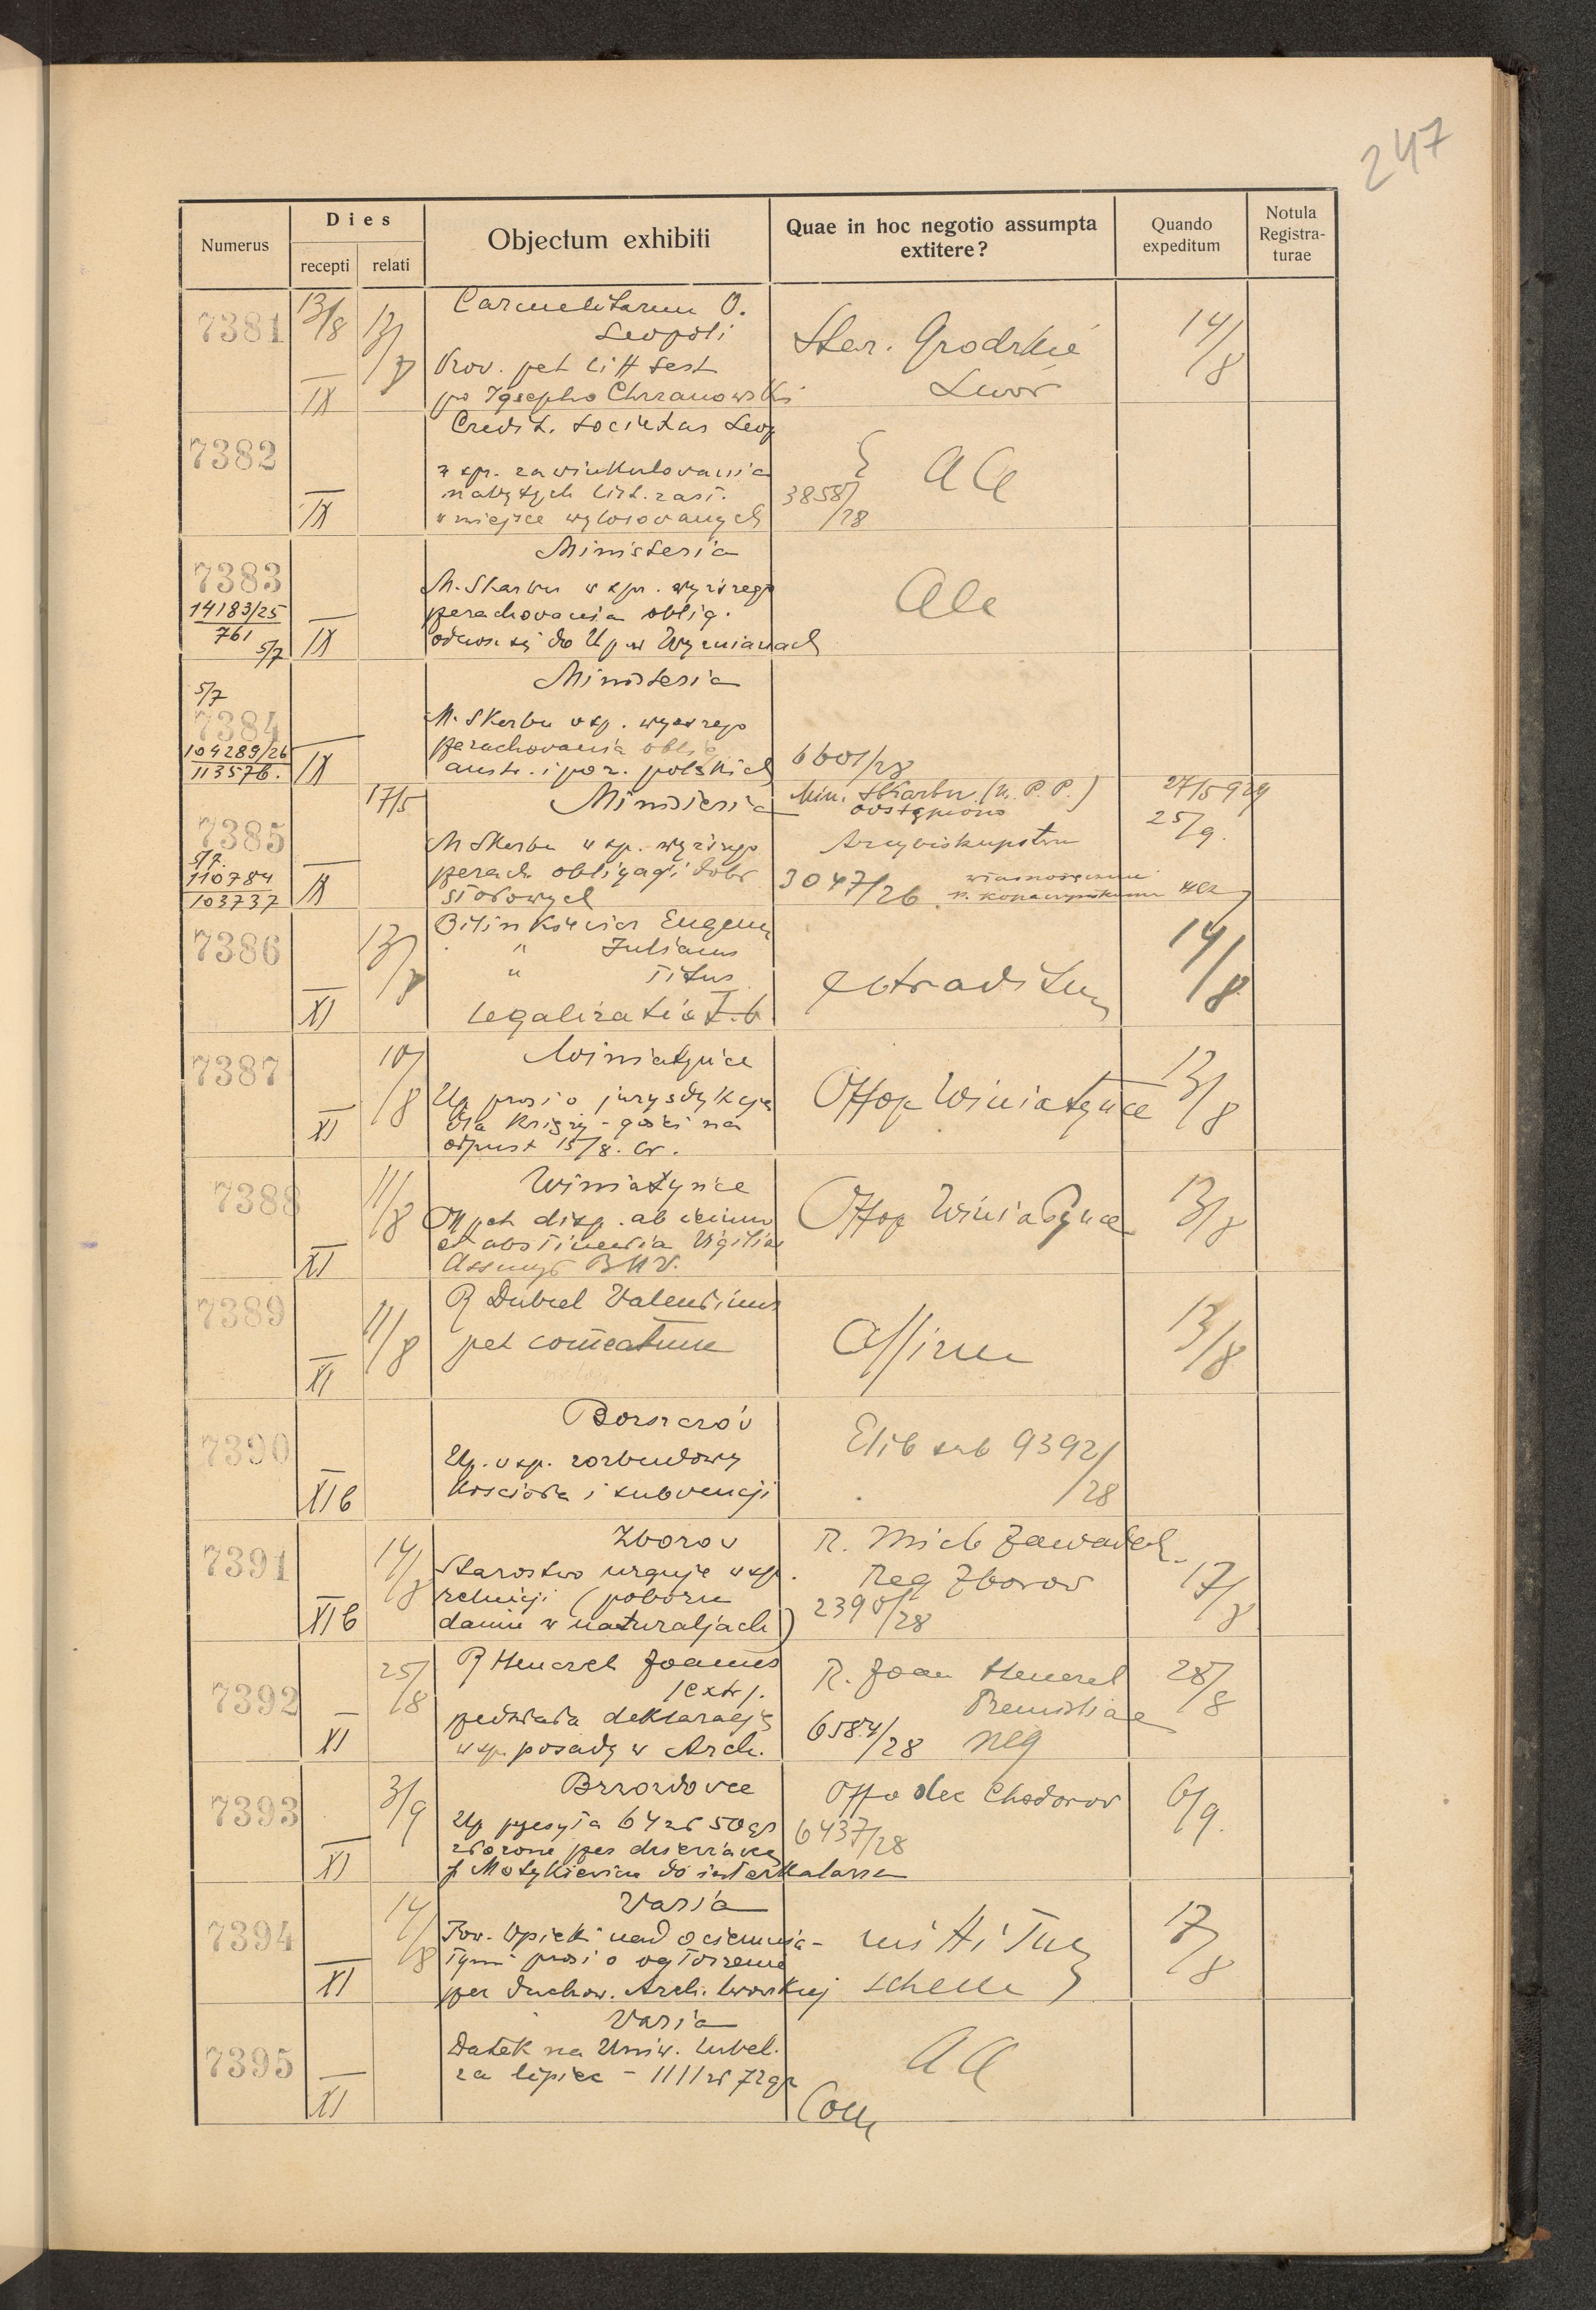 247
Numerus
Dies
recepti
relati
Objectum exhibiti
Quae in hoc negotio assumpta
extitere?
Quando
expeditum
Notula
Registra-
turae
7381
13/8
13/8
IX
Carmelitarum O.
Leopoli
Prov. pet litt test
po Josepho Chrzanowski
Star. Grodzkie
Lwów
14/8
7382
IX
Credit. Societas Leop
w spr. zawinkulowania
nabytych list. zast.
w miejsce wylosowanych
3858/28
7383
14183/25
761
5/7
IX
Ministeria
M. Skarbu w spr. wyższego
perachowania oblig.
5/7
7384
104289/26
113576.
IX
Ministeria
M. Skarbu w sp. wyższego
perachowania oblig
austr. i poż. polskich
6601/28
7385
5/7.
110784
103737
IX
17/5
Ministeria
M Skarbu w sp. wyższego
perach obligacji dóbr
stołowych
Min. Skarbu (U. P. P.)
odstąpiono
Arcybiskupstwu
3047/26
27/5 929
25/9.
7386
13/8
XI
Bilinkiewicz Eugeni
" Julianus
" Titus
Legalizatio T. b
extraditum
14/8
7387
10/8
XI
Winiatyńce
Up prosi o jurysdykcję
dla księży-gości na
odpust 15/8. br.
Offop Winiatyńce
13/8
7388
11/8
XI
Winiatyńce
Off pet disp. ab ieiunio
et abstinentia Vigiliae
Assumpt BMV.
Offop Winiatyńce
13/8
7389
11/8
XI
R Dubiel Valentinus
pet comeatum
Affirm
13/8
7390
XIb
Borszczów
Up. w sp. rozbudowy
kościoła i subwencji
Elib sub 9392/28
7391
14/8
XIb
Zborów
Starostwo urguje w sp.
relucji (poboru
danin w naturaljach)
R. Mich Zawadzk.
Reg Zborów
2390/28
17/8
7392
25/8
XI
R Henczel Joannes
/extr/.
w sp. posady w Arch.
R. Joan Henczel
Premisliae
6584/28 neg
28/8
7393
3/9
XI
Brzozdowce
Up przesyła 64 zł 50 gr
złożone przez dzierżawcę
p Motykiewicza do interkalarza
Offo dec Chodorów
6437/28
6/9.
7394
14/8
XI
Varia
Tow. Opieki nad ociemnia-
łymi prosi o ogłoszenie
per duchow. Arch. lwowskiej
mittitur
schem
17/8
7395
XI
Varia
Datek na Uniw. Lubel.
za lipiec - 1111 zł 72 gr